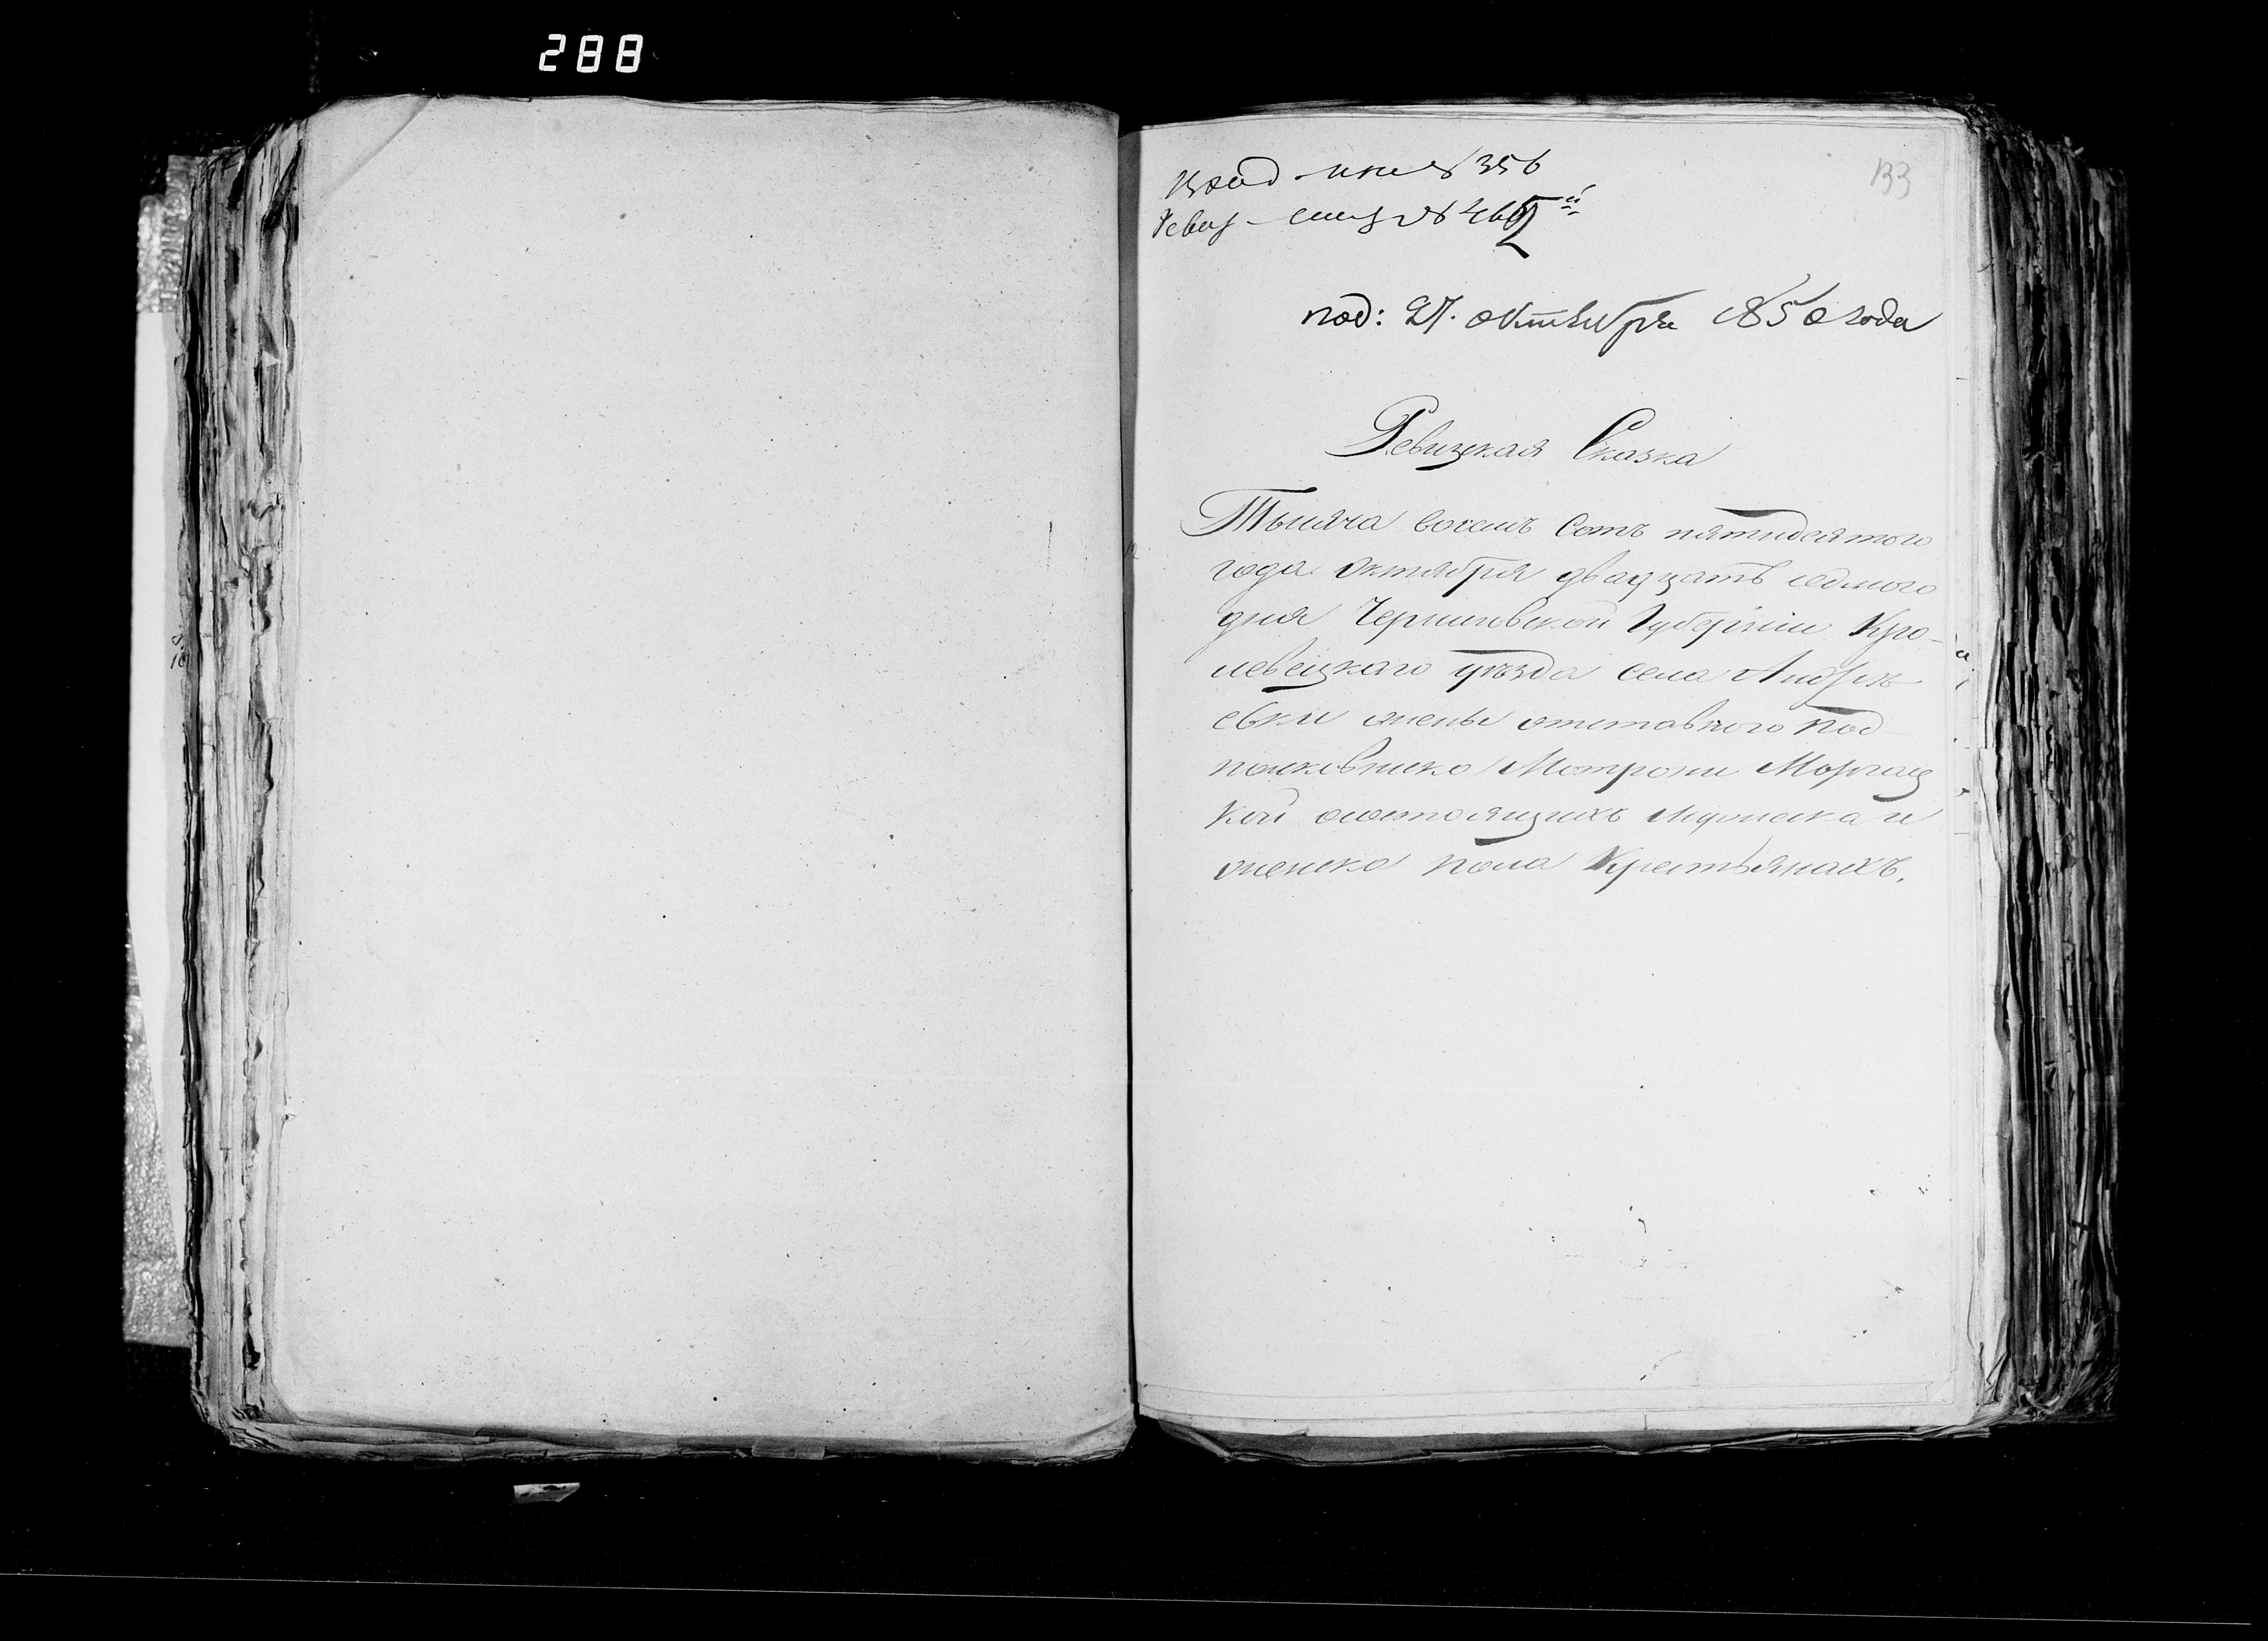 288
133
Вход книг № 356
Ревиз - сказ № 465й
под: 27. октября 1850 года
Ревизская Сказка
Тысяча восемь Сотъ пятидесятого
года Октября двадцать седмого
дня Черниговской Губерніи Кро-
левецкаго уѣзда села Андрѣ
евки жены отставного под
полковнико Мотрони Моргац
кой о состоящихъ мужеска и
женско пола Крестьянахъ.